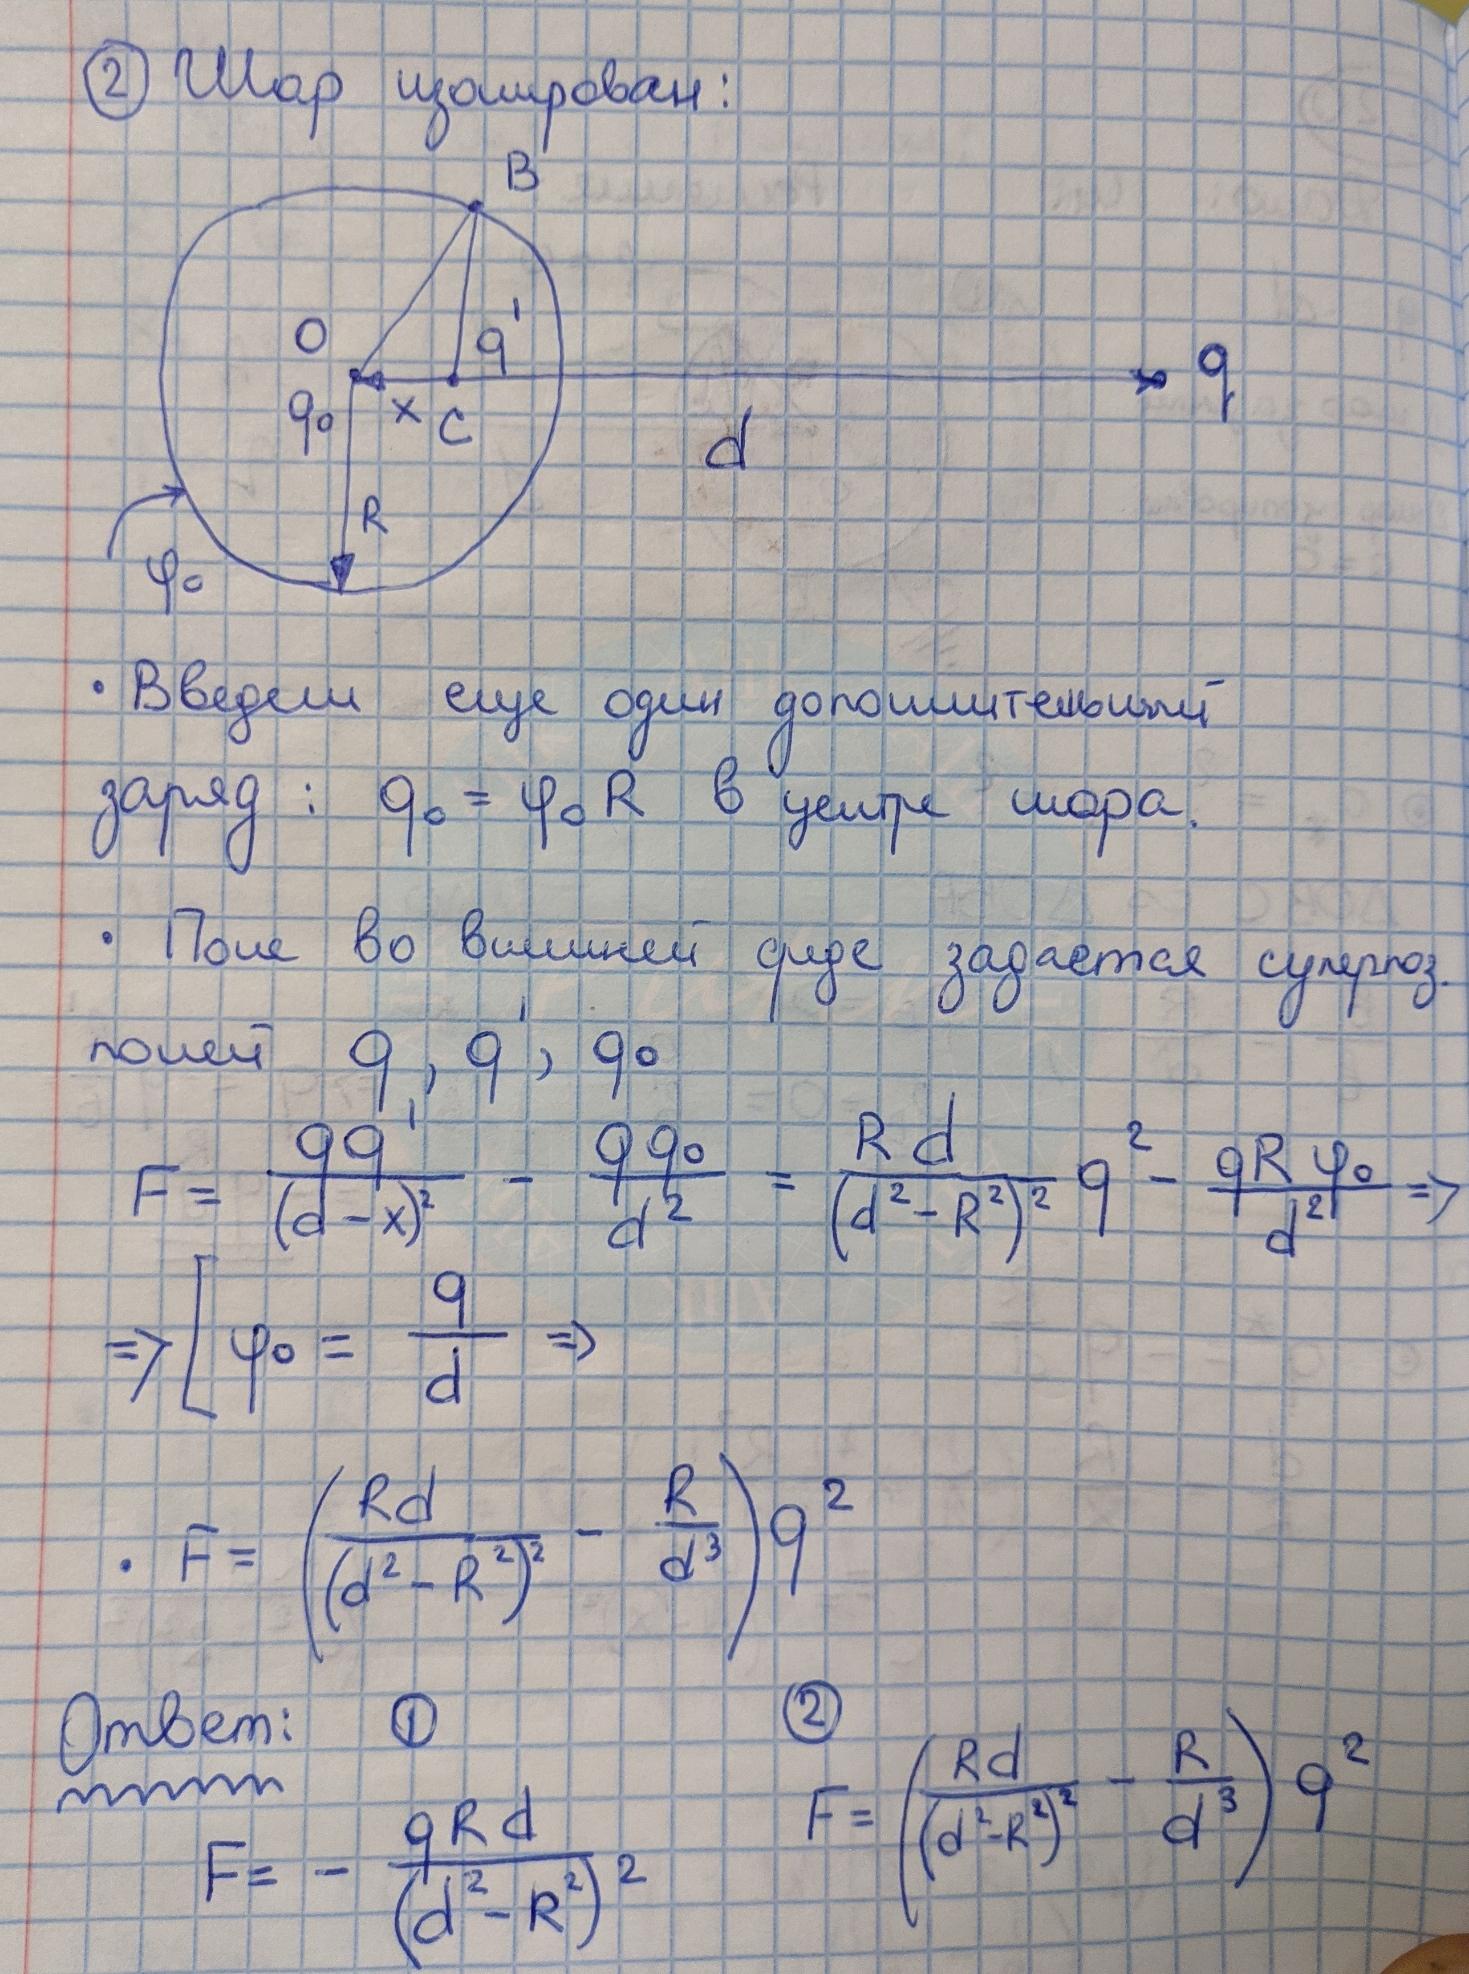 ② Шар изолирован:
B
O
q'
q
q₀
x
C
d
R
φ₀
• Введем еще один дополнительный
заряд: q₀ = φ₀R в центре шара.
• Поле во внешней среде задается суперпоз.
полей q, q', q₀
F = qq'/(d-x)² - qq₀/d² = Rd/(d²-R²)² q² - qRφ₀/d² =>
=> [ φ₀ = q/d =>
• F = (Rd/(d²-R²)² - R/d³) q²
Ответ: ① ②
F = - qRd/(d²-R²)² F = (Rd/(d²-R²)² - R/d³) q²